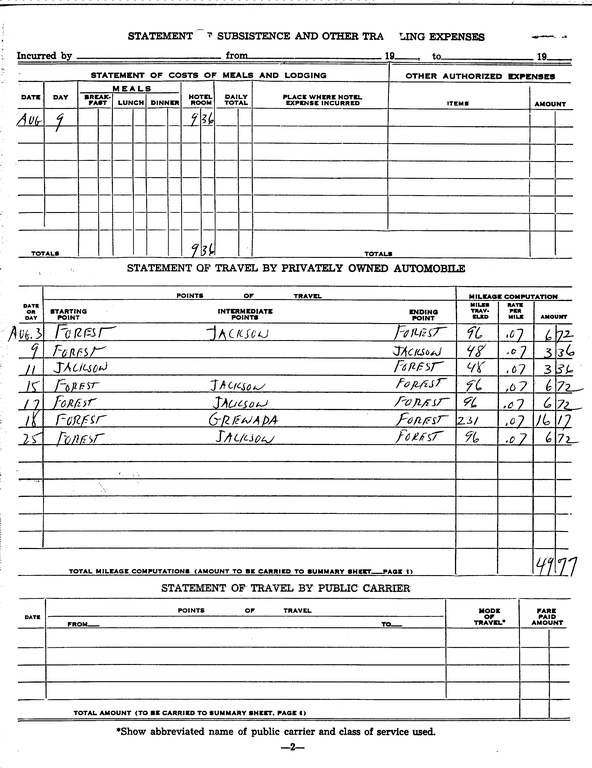 STATEMENT SUBSISTENCE AND OTHER TRA LING EXPENSES
Incurred by from 19 , to 19
STATEMENT OF COSTS OF MEALS AND LODGING OTHER AUTHORIZED EXPENSES
DATE DAY MEALS BREAK-FAST LUNCH DINNER HOTEL ROOM DAILY TOTAL PLACE WHERE HOTEL EXPENSE INCURRED ITEMS AMOUNT
AUG 9 9 36
TOTALS 9 36 TOTALS
STATEMENT OF TRAVEL BY PRIVATELY OWNED AUTOMOBILE
POINTS OF TRAVEL MILEAGE COMPUTATION
DATE OR DAY STARTING POINT INTERMEDIATE POINTS ENDING POINT MILES TRAV-ELED RATE PER MILE AMOUNT
AUG. 3 FOREST JACKSON FOREST 96 .07 6 72
9 FOREST JACKSON 48 .07 3 36
11 JACKSON FOREST 48 .07 3 36
15 FOREST JACKSON FOREST 96 .07 6 72
17 FOREST JACKSON FOREST 96 .07 6 72
18 FOREST GRENADA FOREST 231 .07 16 17
25 FOREST JACKSON FOREST 96 .07 6 72
TOTAL MILEAGE COMPUTATIONS (AMOUNT TO BE CARRIED TO SUMMARY SHEET—PAGE 1) 49 77
STATEMENT OF TRAVEL BY PUBLIC CARRIER
DATE POINTS OF TRAVEL MODE OF TRAVEL* FARE PAID AMOUNT
FROM— TO—
TOTAL AMOUNT (TO BE CARRIED TO SUMMARY SHEET, PAGE 1)
*Show abbreviated name of public carrier and class of service used.
—2—